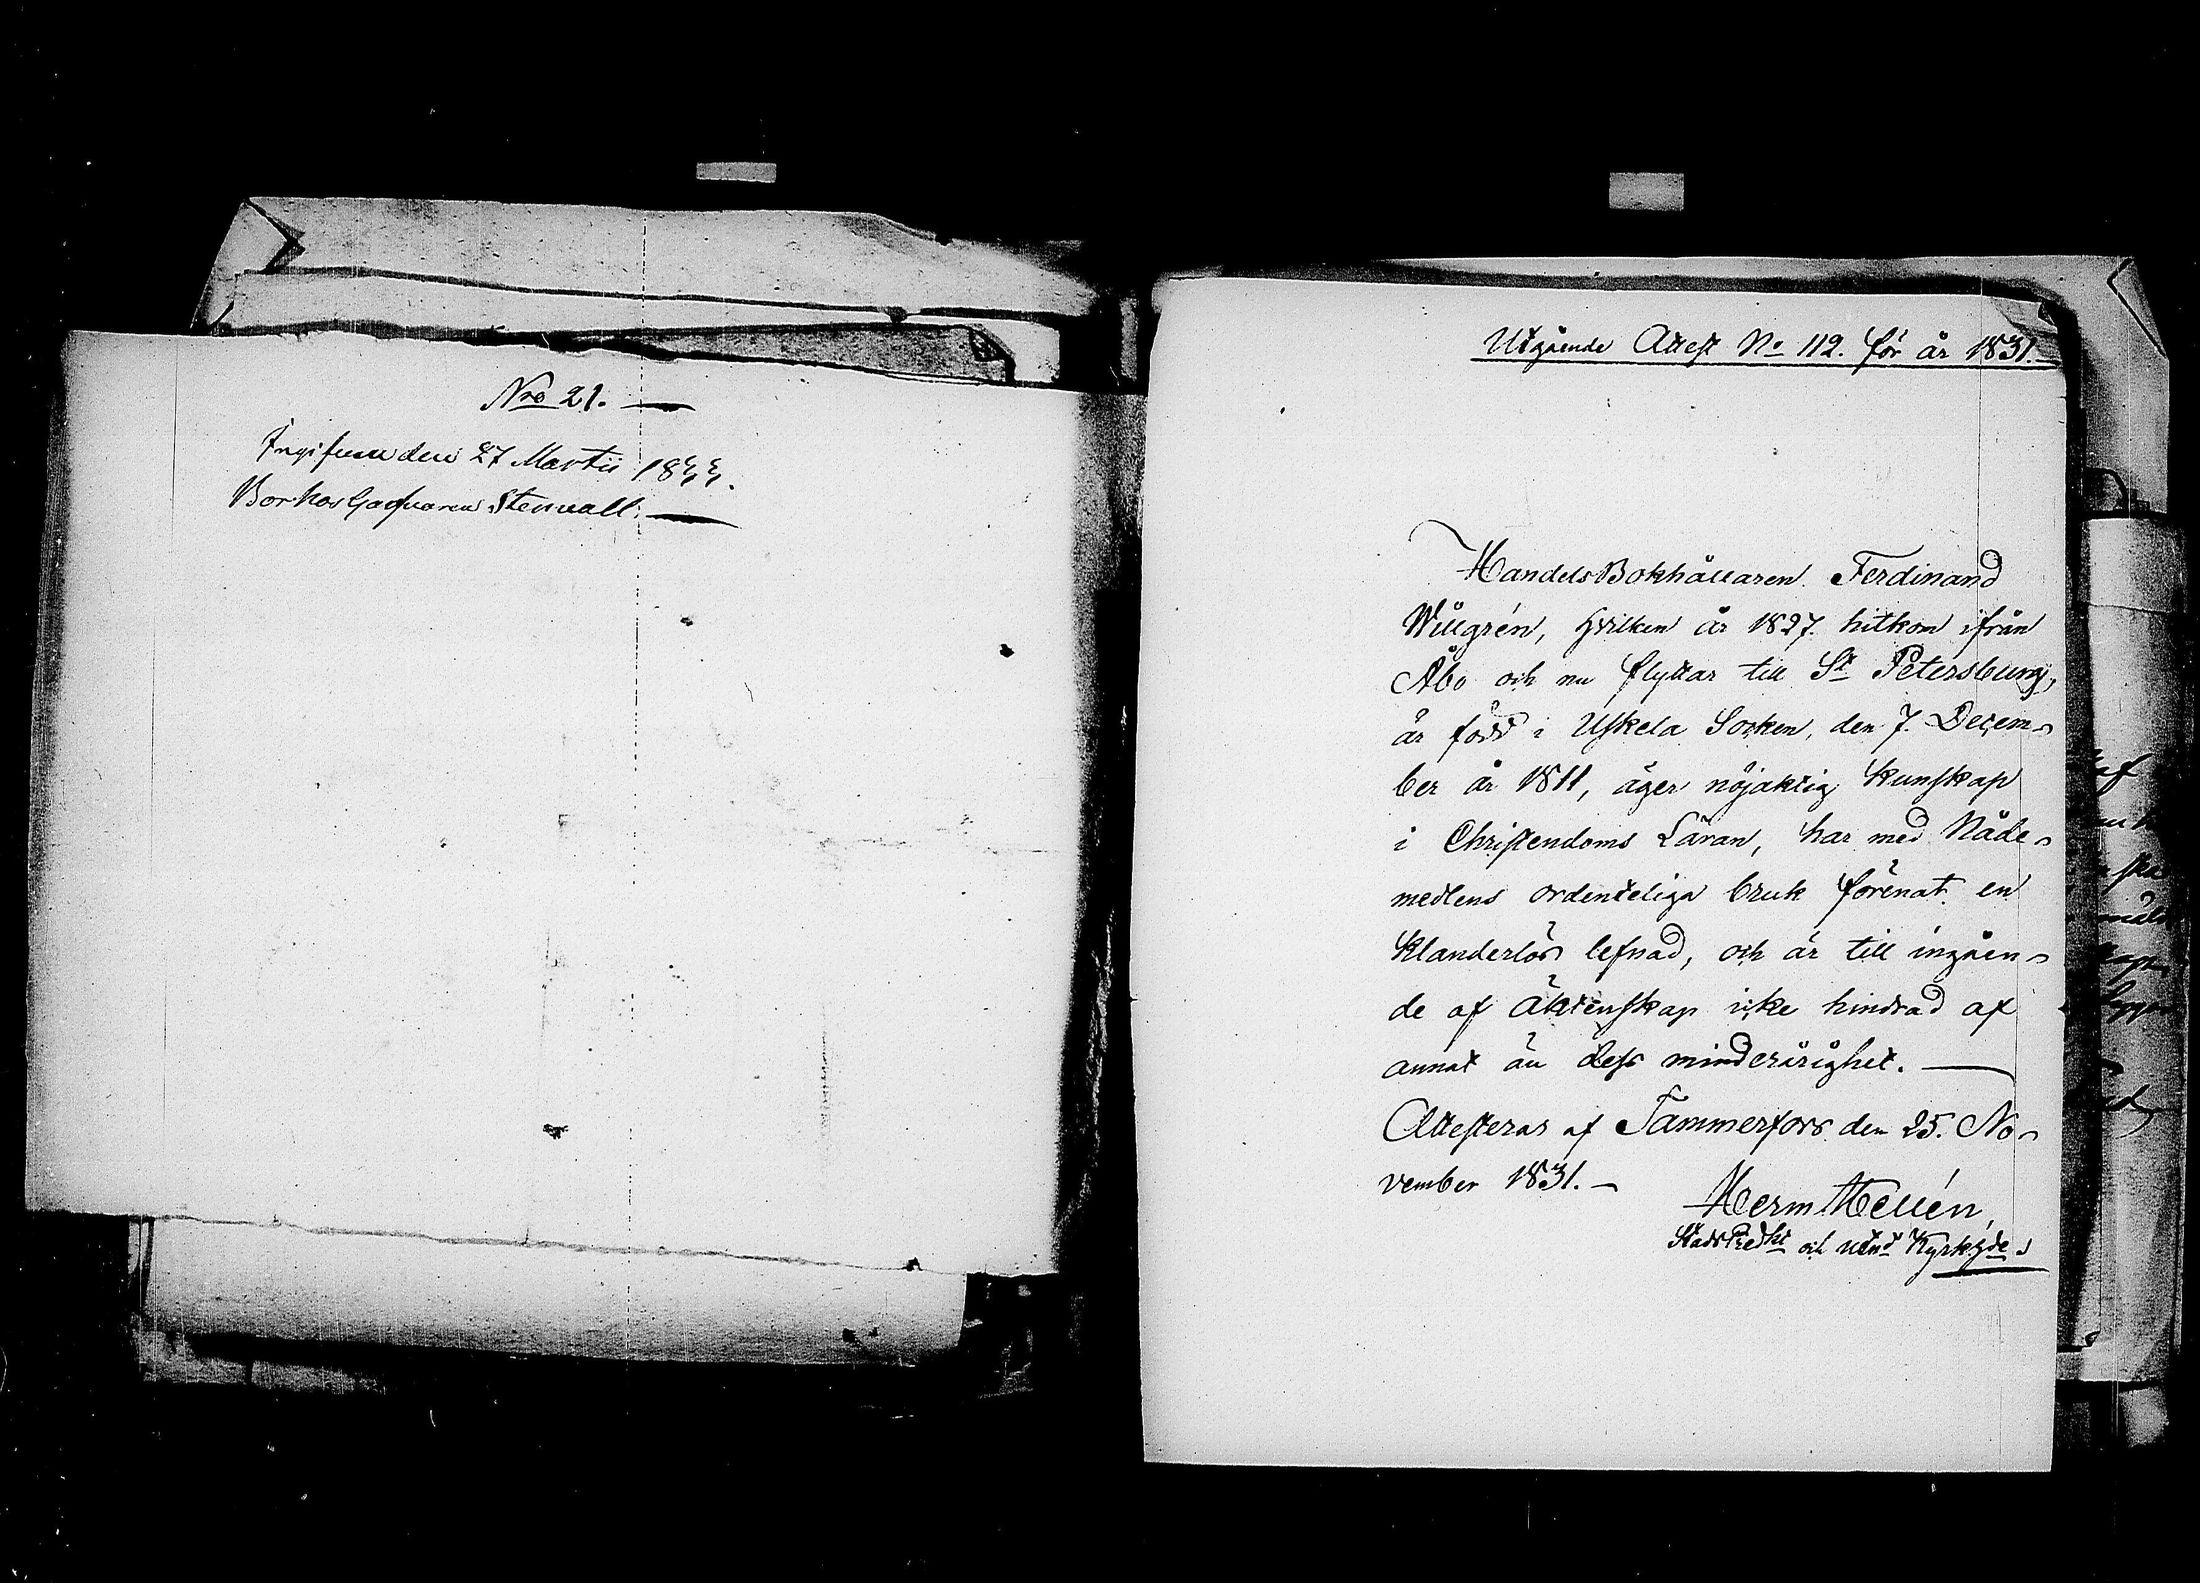 Nro 21.
Ingifven den 27 Martii 1833.
Bor hos Garfvaren Stenvall.
Utgående Attest No 112. för år 1831.
HandelsBokhållaren Ferdinand
Willgrén, hvilken år 1827. hitkom ifrån
Åbo och nu flyttar till St Petersburg,
är född i Uskela Socken, den 7. Decem-
ber år 1811, äger nöjaktig kunskap
i Christendoms Läran, har med Nåde-
medlens ordenteliga bruk förenat en
klanderlös lefnad, och är till ingåen-
de af Äktenskap icke hindrad af
annat än dess minderårighet.
Attesteras af Tammerfors den 25. No-
vember 1831.
Herm Hellén,
StadsPredkt och